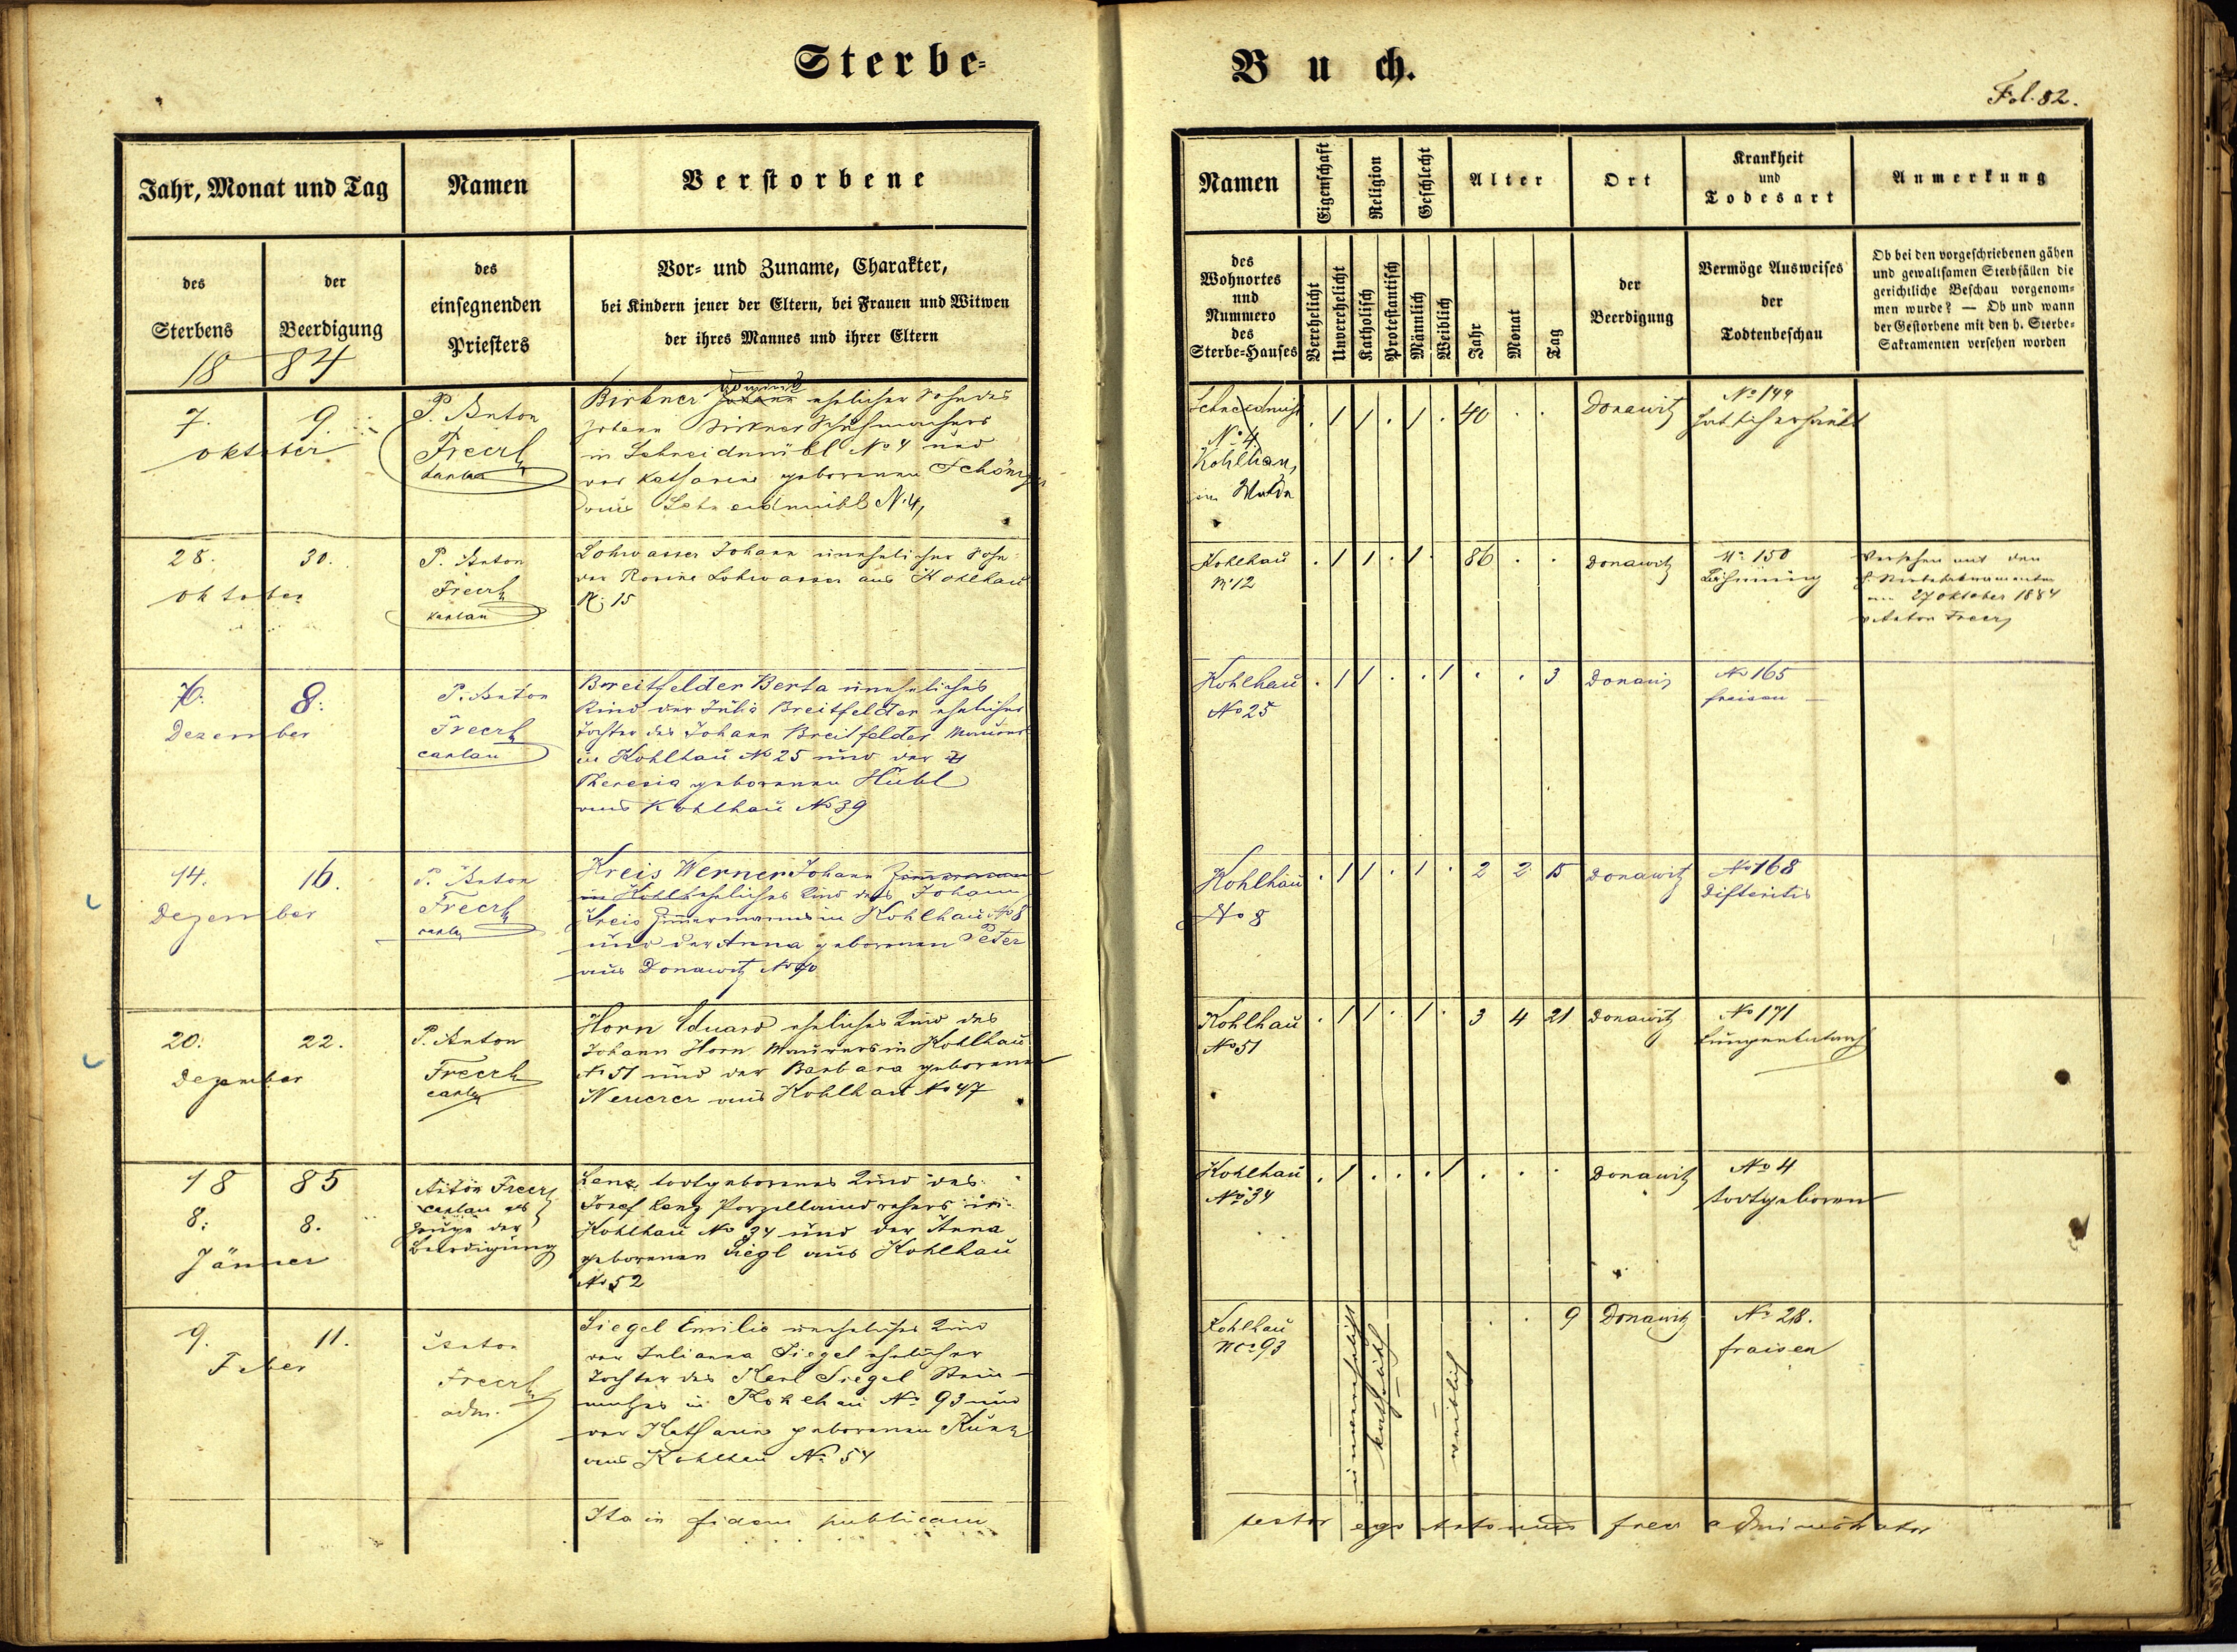 Sterbe-
Jahr, Monat und Tag
Namen
Verstorbene
des
Sterbens
der
Beerdigung
des
einsegnenden
Priesters
Vor- und Zuname, Charakter,
bei Kindern jener der Eltern, bei Frauen und Witwen
der ihres Mannes und ihrer Eltern
18 84
7. 9.
oktober
P. Anton
Freerl
Birkner Johann ehelicher Sohn des
Johann Birkner Schuhmachers
in Schneidmühl No 4 und
der Katharina geborenen
aus Schneidmühl No 4,
28. 30.
oktober
P. Anton
Freerl
kaplan
Lohwasser Johann unehelicher Sohn
der Rosine Lohwasser aus Kohlhau
No 15
6. 8.
Dezember
P. Anton
Freerl
caplan
Breitfelder Berta uneheliches
Kind der Julia Breitfelder ehelicher
Tochter des Johann Breitfelder Maurers
in Kohlhau No 25 und der
Theresia geborenen Hübl
aus Kohlhau No 39
14. 16.
Dezember
P. Anton
Freerl
Kreis Werner Johann
eheliches Kind des Johann
Kreis Zimmermanns in Kohlhau No 8
und der Anna geborenen Peter
aus Donawitz No 90
20. 22.
Dezember
P. Anton
Freerl
Horn Eduard eheliches Kind des
Johann Horn Maurers in Kohlhau
No 51 und der Barbara geborenen
Neuerer aus Kohlhau No 47
18 85
8. 8.
Jänner
Anton Freerl
caplan als
Zeuge der
Beerdigung
Lenz todtgeborenes Kind des
Josef Lenz Porzellaindrehers in
Kohlhau No 34 und der Anna
geborenen Siegl aus Kohlhau
No 52
9. 11.
Feber
Anton
Freerl
adm.
Siegel Emilie uneheliches Kind
der Julianna Siegel ehelicher
Tochter des Karl Siegel Stein-
metzes in Kohlhau No 93 und
der Katharina geborenen Kunz
aus Kohlhau No 54
Ita in fidem publicam
Buch.
Fol. 82.
Namen
Eigenschaft
Religion
Geschlecht
Alter
Ort
Krankheit
und
Todesart
Anmerkung
des
Wohnortes
und
Nummero
des
Sterbe-Hauses
Verehelicht
Unverehelicht
Katholisch
Protestantisch
Männlich
Weiblich
Jahr
Monat
Tag
der
Beerdigung
Vermöge Ausweises
der
Todtenbeschau
Ob bei den vorgeschriebenen gähen
und gewaltsamen Sterbfällen die
gerichtliche Beschau vorgenom-
men wurde? — Ob und wann
der Gestorbene mit den h. Sterbe-
Sakramenten versehen worden
Schneidmühl
No 4
Kohlhau,
im Walde
. 1 1 . 1 . 40 . . Donawitz
No 144
hat sich erhängt
Kohlhau
No 12
. 1 1 . 1 . 86 . . Donawitz
No 150
Versehen mit den
h. Sterbesakramenten
am 27 oktober 1884
v. Anton Freerl
Kohlhau
No 25
. 1 1 . . 1 . . 3 Donawitz
No 165
fraisen
Kohlhau
No 8
. 1 1 . 1 . 2 2 15 Donawitz
No 168
Difteritis
Kohlhau
No 51
. 1 1 . 1 . 3 4 21 Donawitz
No 171
Kohlhau
No 34
. 1 . . . 1 . . . Donawitz
No 4
todtgeboren
Kohlhau
No 93
unverehelicht
katholisch
weiblich
. . 9 Donawitz
No 28.
fraisen
testor ego Antonius administrator